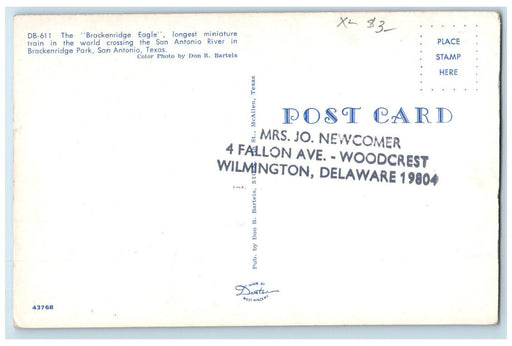 X- $3-
DB-611 The "Brackenridge Eagle", longest miniature
train in the world crossing the San Antonio River in
Brackenridge Park, San Antonio, Texas.
Color Photo by Don R. Bartels
PLACE
STAMP
HERE
POST CARD
MRS. JO. NEWCOMER
4 FALLON AVE. - WOODCREST
WILMINGTON, DELAWARE 19804
Pub. by Don R. Bartels, St., McAllen, Texas
MADE BY
Dexter
WEST NYACK, NY
43768